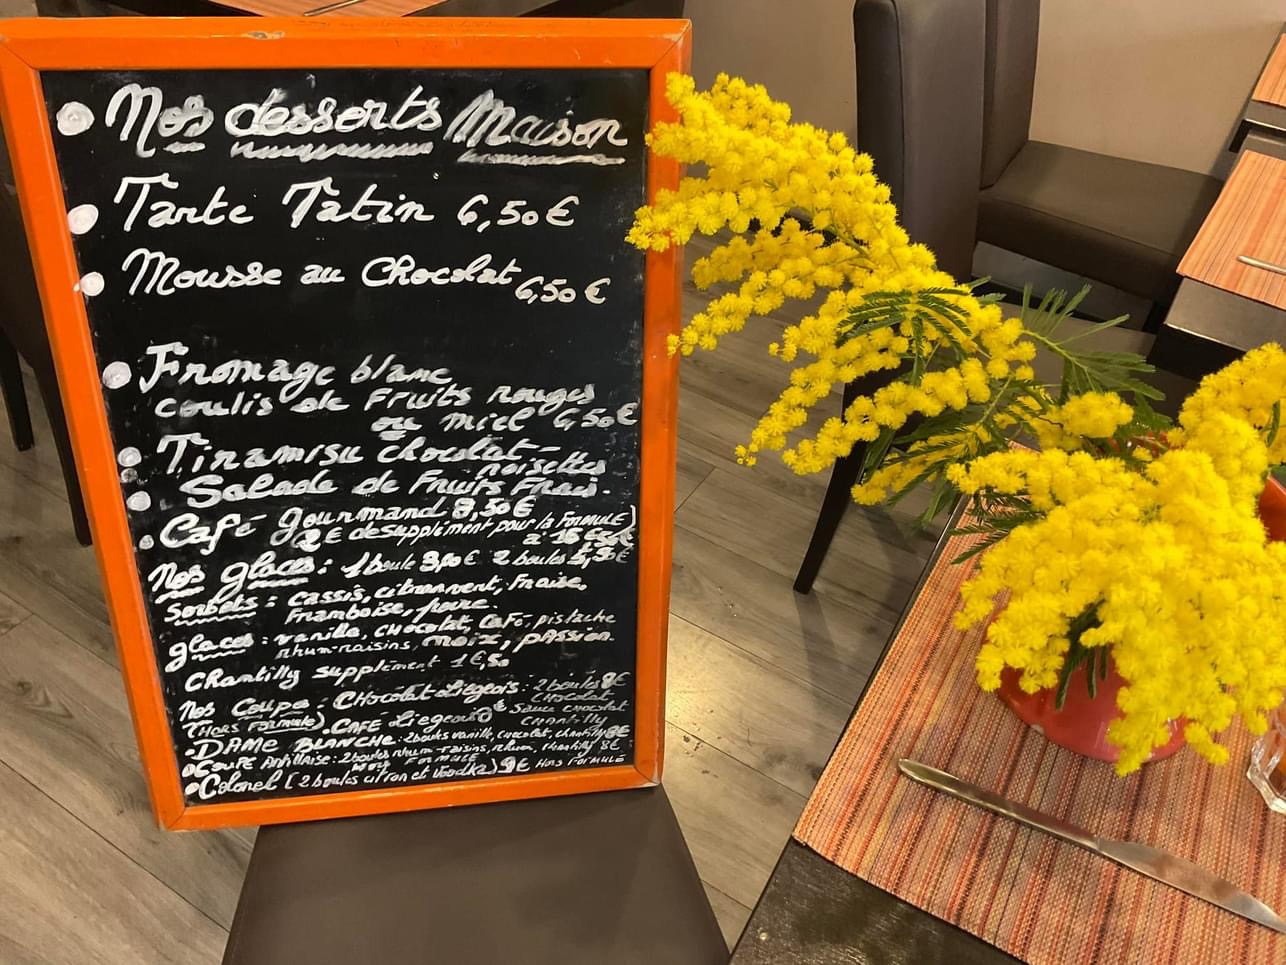 Nos desserts Maison
Tarte Tatin 6,50€
Mousse au Chocolat 6,50€
Fromage blanc
coulis de Fruits rouges
ou miel 6,50€
Tiramisu chocolat-
noisettes
Salade de Fruits Frais.
Café gourmand 8,50€
2€ de supplément pour la Formule)
Nos glaces: 1 boule 2 boules
Sorbets: cassis, citron vert, Fraise,
Framboise, poire.
glaces: vanille, CHocolat, Café, pistache
rhum-raisins, noix, passion.
CHantilly supplément 1€,50
Nos Coupes: CHocolat Liegeois: 2 boules 8€
CHocolat
(Hors Formule). CAFE Liegeois Sauce CHOCOLAT
CHANTILLY
DAME BLANCHE: 2 boules vanille, chocolat, chantilly 8€
Coupe Antillaise: 2 boules rhum-raisins, rhum, chantilly 8€
Hors Formule
Colonel (2 boules citron et Vodka) 9€ Hors FORMULE